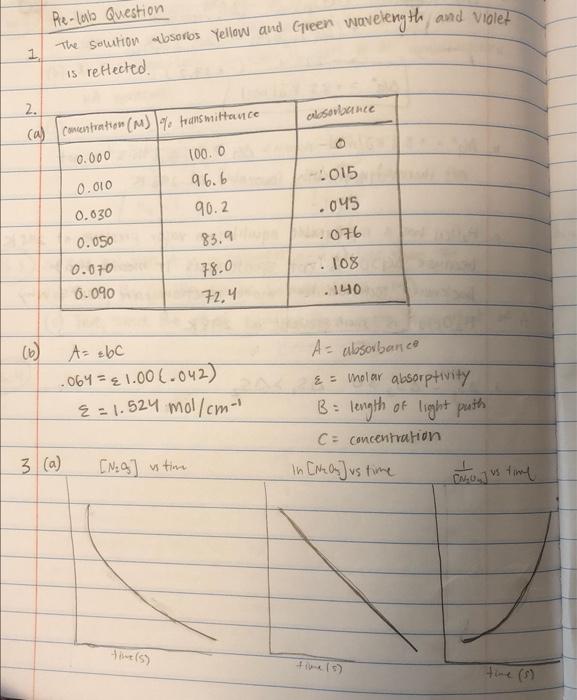 Pre-lab Question
1. The solution absorbs Yellow and Green wavelength, and violet
is reflected.
2.
(a) Concentration (M) % transmittance absorbance
0.000 100.0 0
0.010 96.6 .015
0.030 90.2 .045
0.050 83.9 .076
0.070 78.0 .108
0.090 72.4 .140
(b) A = εbC A = absorbance
.064 = ε 1.00 (.042) ε = molar absorptivity
ε = 1.524 mol/cm⁻¹ B = length of light path
C = concentration
3 (a) [N₂O₅] vs time ln [N₂O₅] vs time 1/[N₂O₅] vs time
time (s) time (s) time (s)